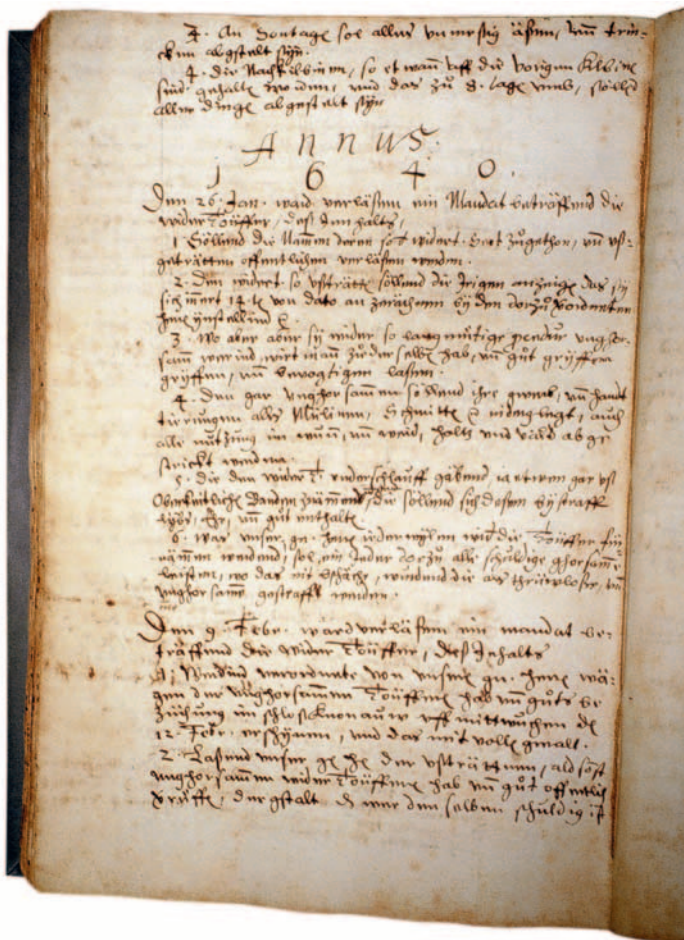 3. An Sontagen sol alles unmessig ässen, und trin-
cken abgstelt syn.
4. Die Nachkilbinen, so et wann uff die vorigen Kilbinen
sind gehalten worden, und das zu 8. tagen umb, söllend
aller dingen abgestelt syn
ANNUS.
1 6 4 0.
Den 26. Jan. ward verläsen ein Mandat beträffend die
widerTöüffer, dess Innhalts,
1 Söllend die Nammen deren so widert. Sect zugethon, und uss-
geträtten offentlichen verläsen werden.
2. Den widert. so ussträtten söllend die Irigen anzeigen das sy
sich innert 14 t. von dato an zerächnen by den darzu verordneten
Herren ynstellind
3. Wo aber aber sy wider so langmütige
sam werind, wirt man zu der selben hab, und gut gryffen
gryffen, und bevogtigen lassen.
4. Den gar unghorsammen söllend ihre gwerb, und handt
tierungen alss Mülinen, Schmitten nidergelegt, auch
alle nutzung im wunn, und weid, holtz und väld ab ge
strickt werden.
5. die den wider T. underschlauff gäbend,
Oberkeitliche die söllend sich dessen by straff
Ehr, und gut enthalten.
6. Was unser gn. Herren wider die Töüffer für
nämmen werdend, sol ein Jeder darzu alle schuldige ghorsamme
leisten, wo das nit bschäche, werdend die als thrüwlose, und
unghorsamme gestrafft werden.
Den 9. Febr. ward verläsen ein mandat be-
träffend die widerTöüffer, dess Inhalts
1. Werdind verordnete von unseren gn. Herren wä-
gen der unghorsammen Töüfferen hab und guts be
ziehung im schloss Knonauw uff mittwuchen den
12. Febr. erschynen, und das mit vollem gwalt.
2. Lassend unser gn. Hn. der ussträttnen, ald sost
unghorsammen widerTöüfferen hab und gut offentlich
der gstalt das wer den selben schuldig ist